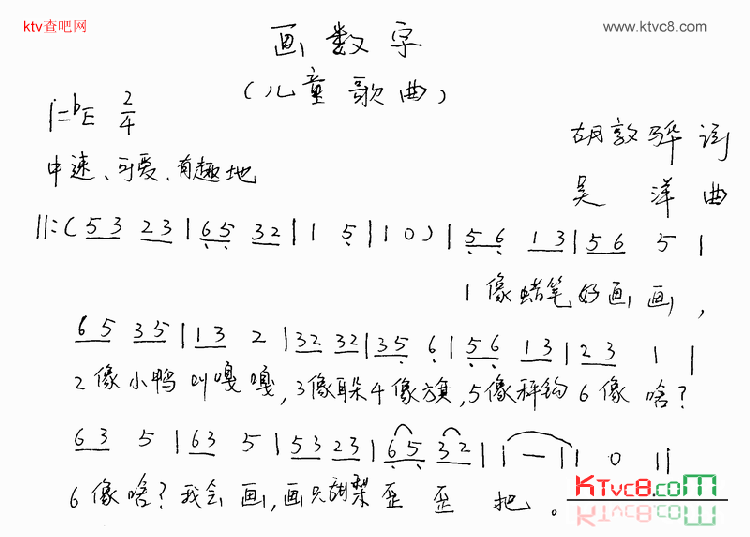 ktv查吧网
www.ktvc8.com
画数字
(儿童歌曲)
1=♭E 2/4
胡敦骅 词
中速、可爱、有趣地
吴洋 曲
||:( 5 3 2 3 | 6 5 3 2 | 1 5 | 1 0 ) | 5 6 1 3 | 5 6 5 |
1像蜡笔好画画,
6 5 3 5 | 1 3 2 | 3 2 3 2 | 3 5 6 | 5 6 1 3 | 2 3 1 1 |
2像小鸭叫嘎嘎,3像耳朵4像旗,5像秤钩6像啥?
6 3 5 | 6 3 5 | 5 3 2 3 | 6 5 3 2 | 1 - | 1 0 ||
6像啥?我会画,画只 歪歪把。
KTvc8.com